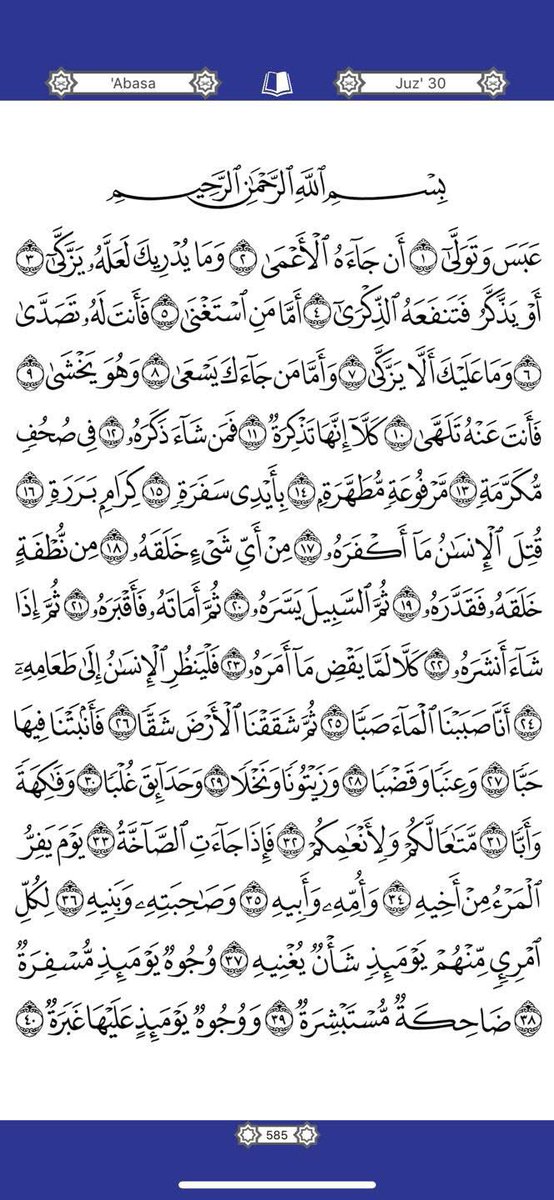 'Abasa
Juz' 30
بِسْمِ ٱللَّهِ ٱلرَّحْمَٰنِ ٱلرَّحِيمِ
عَبَسَ وَتَوَلَّىٰٓ ١ أَن جَآءَهُ ٱلْأَعْمَىٰ ٢ وَمَا يُدْرِيكَ لَعَلَّهُۥ يَزَّكَّىٰٓ ٣
أَوْ يَذَّكَّرُ فَتَنفَعَهُ ٱلذِّكْرَىٰٓ ٤ أَمَّا مَنِ ٱسْتَغْنَىٰ ٥ فَأَنتَ لَهُۥ تَصَدَّىٰ
٦ وَمَا عَلَيْكَ أَلَّا يَزَّكَّىٰ ٧ وَأَمَّا مَن جَآءَكَ يَسْعَىٰ ٨ وَهُوَ يَخْشَىٰ ٩
فَأَنتَ عَنْهُ تَلَهَّىٰ ١٠ كَلَّآ إِنَّهَا تَذْكِرَةٌ ١١ فَمَن شَآءَ ذَكَرَهُۥ ١٢ فِى صُحُفٍ
مُّكَرَّمَةٍ ١٣ مَّرْفُوعَةٍ مُّطَهَّرَةٍۭ ١٤ بِأَيْدِى سَفَرَةٍ ١٥ كِرَامٍۭ بَرَرَةٍ ١٦
قُتِلَ ٱلْإِنسَٰنُ مَآ أَكْفَرَهُۥ ١٧ مِنْ أَىِّ شَىْءٍ خَلَقَهُۥ ١٨ مِن نُّطْفَةٍ
خَلَقَهُۥ فَقَدَّرَهُۥ ١٩ ثُمَّ ٱلسَّبِيلَ يَسَّرَهُۥ ٢٠ ثُمَّ أَمَاتَهُۥ فَأَقْبَرَهُۥ ٢١ ثُمَّ إِذَا
شَآءَ أَنشَرَهُۥ ٢٢ كَلَّا لَمَّا يَقْضِ مَآ أَمَرَهُۥ ٢٣ فَلْيَنظُرِ ٱلْإِنسَٰنُ إِلَىٰ طَعَامِهِۦٓ
٢٤ أَنَّا صَبَبْنَا ٱلْمَآءَ صَبًّا ٢٥ ثُمَّ شَقَقْنَا ٱلْأَرْضَ شَقًّا ٢٦ فَأَنۢبَتْنَا فِيهَا
حَبًّا ٢٧ وَعِنَبًا وَقَضْبًا ٢٨ وَزَيْتُونًا وَنَخْلًا ٢٩ وَحَدَآئِقَ غُلْبًا ٣٠ وَفَٰكِهَةً
وَأَبًّا ٣١ مَّتَٰعًا لَّكُمْ وَلِأَنْعَٰمِكُمْ ٣٢ فَإِذَا جَآءَتِ ٱلصَّآخَّةُ ٣٣ يَوْمَ يَفِرُّ
ٱلْمَرْءُ مِنْ أَخِيهِ ٣٤ وَأُمِّهِۦ وَأَبِيهِ ٣٥ وَصَٰحِبَتِهِۦ وَبَنِيهِ ٣٦ لِكُلِّ
ٱمْرِئٍ مِّنْهُمْ يَوْمَئِذٍ شَأْنٌ يُغْنِيهِ ٣٧ وُجُوهٌ يَوْمَئِذٍ مُّسْفِرَةٌ
٣٨ ضَاحِكَةٌ مُّسْتَبْشِرَةٌ ٣٩ وَوُجُوهٌ يَوْمَئِذٍ عَلَيْهَا غَبَرَةٌ ٤٠
585